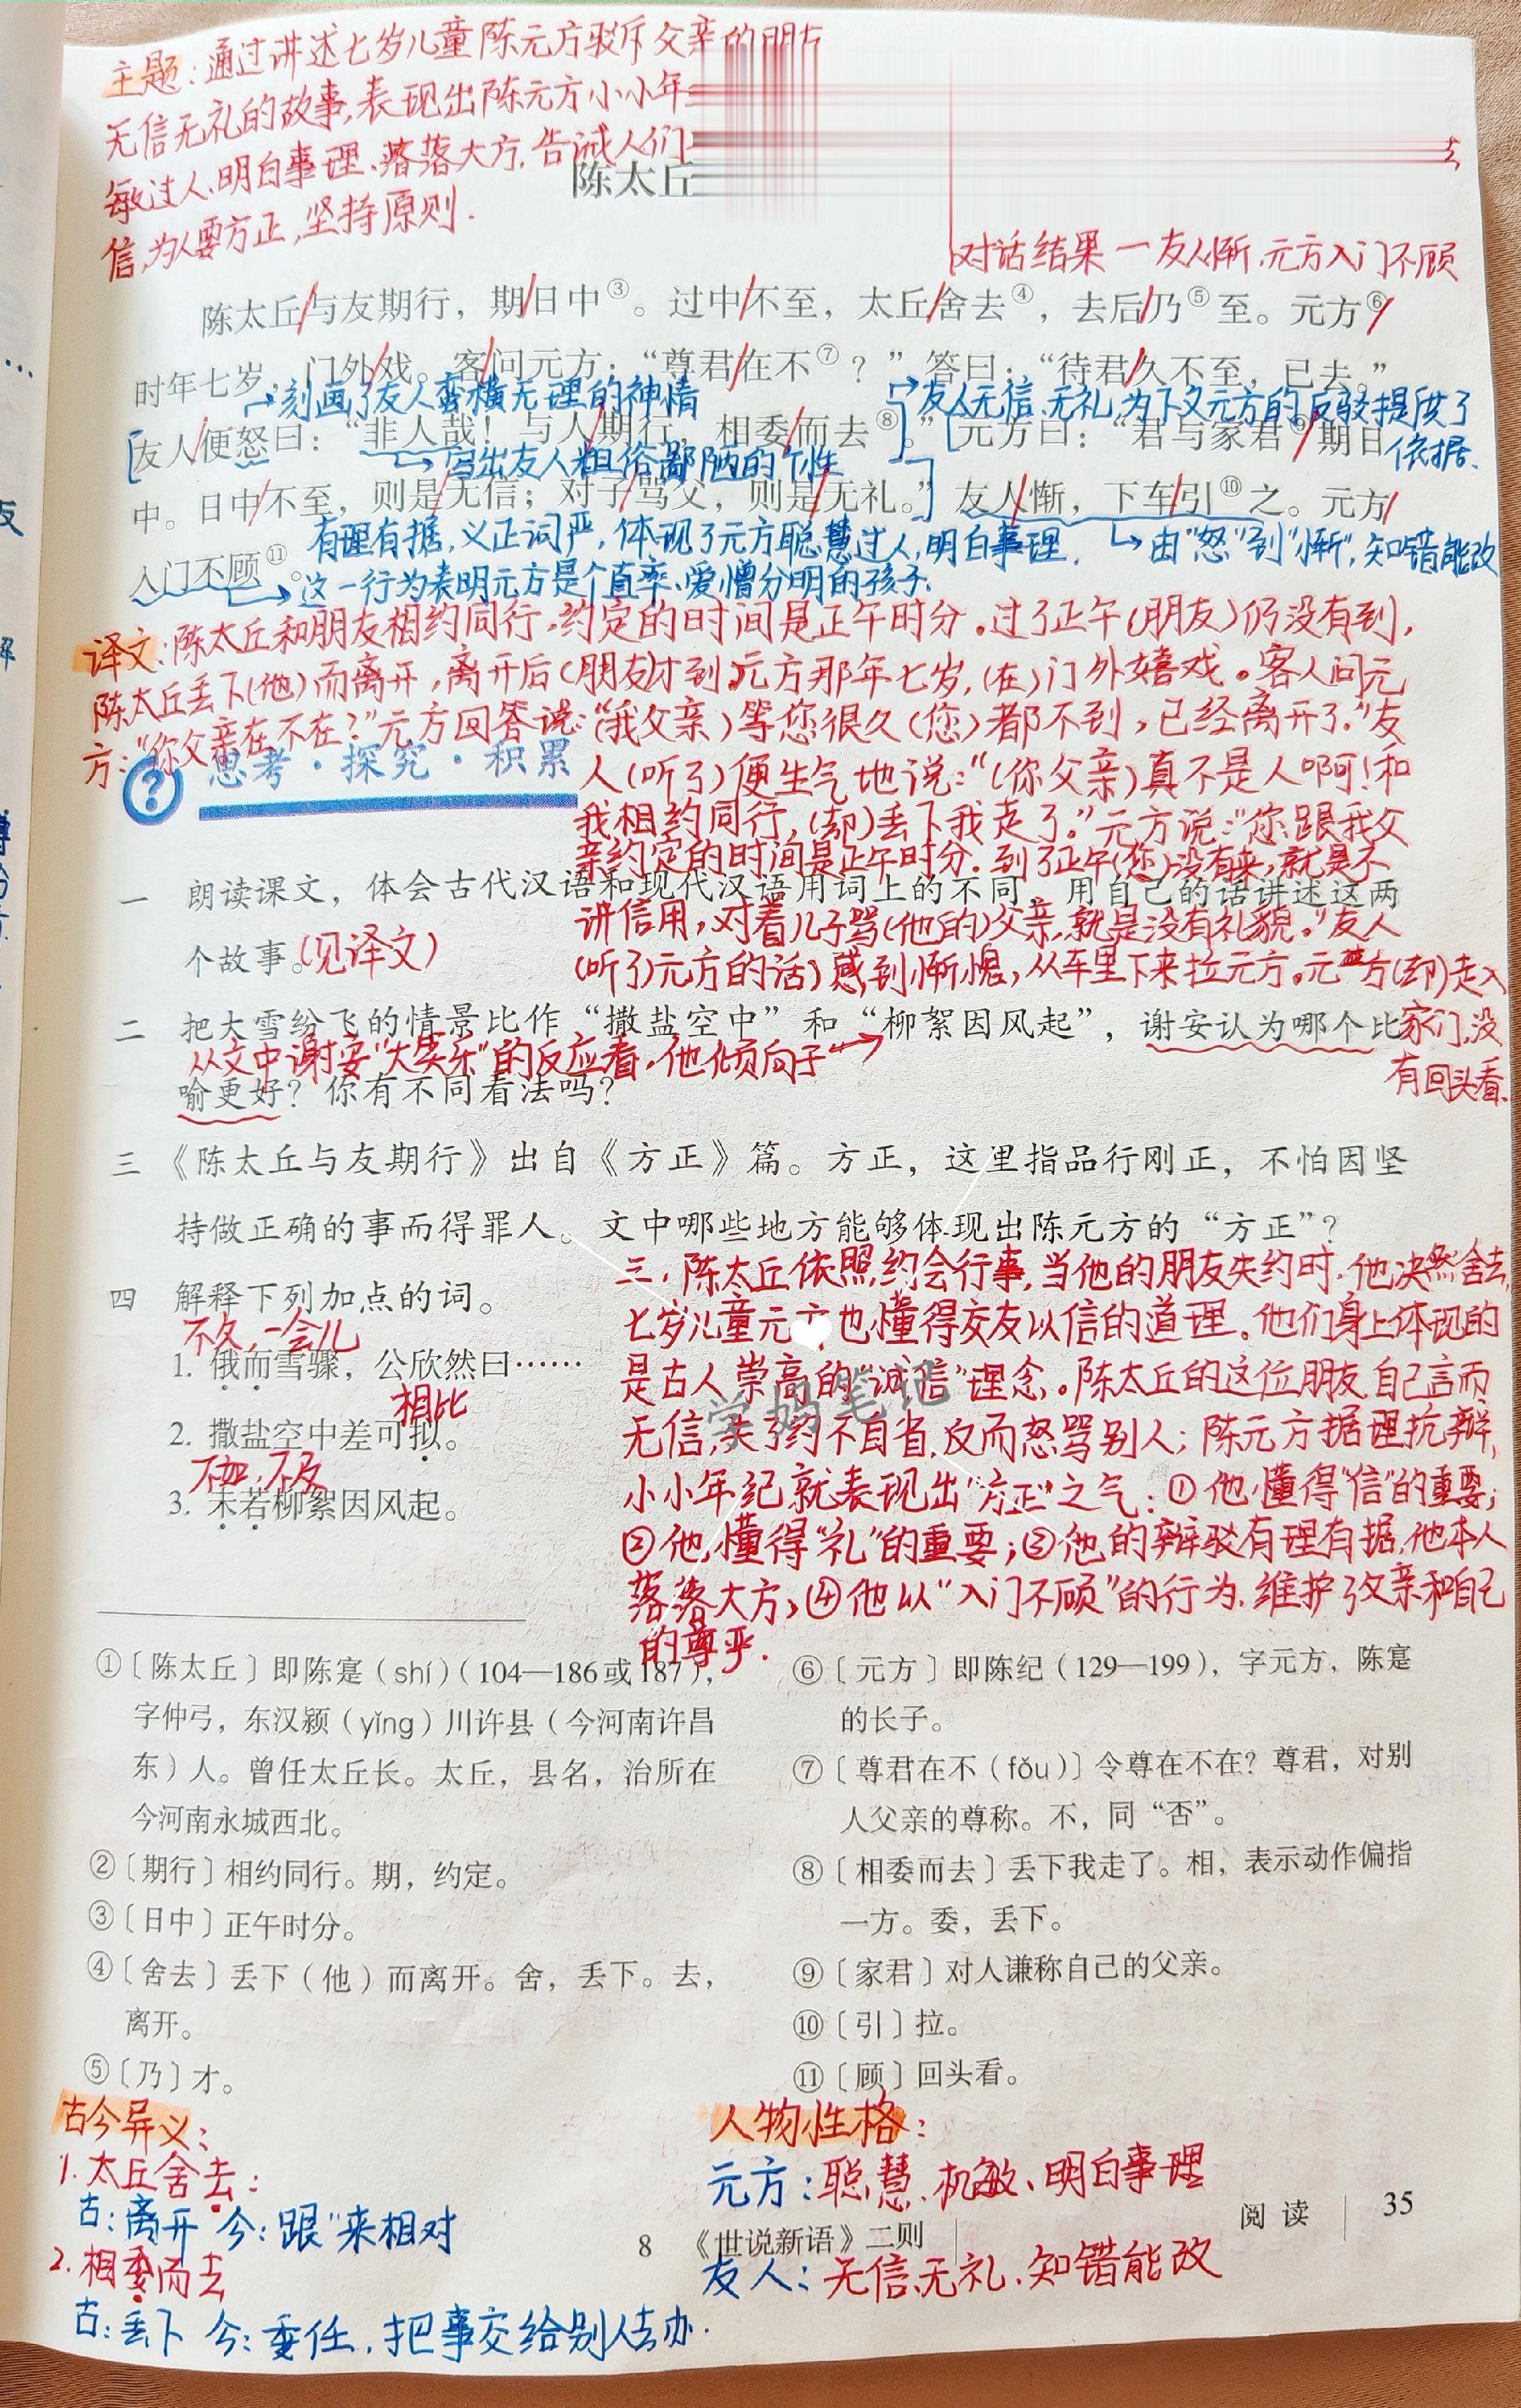 主题:通过讲述七岁儿童陈元方驳斥父亲的朋友
无信无礼的故事,表现出陈元方小小年
敏过人、明白事理、落落大方,告诫人们
信,为人要方正,坚持原则.
陈太丘
对话结果—友人惭,元方入门不顾
陈太丘/与友期行,期/日中③。过中/不至,太丘/舍去④,去后/乃⑤至。元方⑥/
时年七岁,门外/戏。客/问元方:“尊君/在不⑦?”答曰:“待君/久不至,已去。”
→刻画了友人蛮横无理的神情
→友人无信、无礼,为下文元方的反驳提供了
依据.
友人/便怒曰:“非人哉!与人/期行,相委/而去⑧。”元方曰:“君与家君⑨/期日
→写出友人粗俗鄙陋的个性
中。日中/不至,则是/无信;对子/骂父,则是/无礼。”友人/惭,下车/引⑩之。元方/
有理有据,义正词严,体现了元方聪慧过人,明白事理.
→由“怒”到“惭”,知错能改
入门不顾⑪。
→这一行为表明元方是个直率、爱憎分明的孩子.
译文:陈太丘和朋友相约同行,约定的时间是正午时分。过了正午(朋友)仍没有到,
陈太丘丢下(他)而离开,离开后(朋友)才到。元方那年七岁,(在)门外嬉戏。客人问元
方:“你父亲在不在?”元方回答说:“(我父亲)等您很久(您)都不到,已经离开了。”友
人(听了)便生气地说:“(你父亲)真不是人啊!和
我相约同行,(却)丢下我走了。”元方说:“您跟我父
亲约定的时间是正午时分.到了正午(您)没有来,就是不
讲信用,对着儿子骂(他的)父亲,就是没有礼貌。”友人
(听了)元方的话)感到惭愧,从车里下来拉元方。元方(却)走入
家门,没
有回头看.
思考·探究·积累
一 朗读课文,体会古代汉语和现代汉语用词上的不同,用自己的话讲述这两
个故事。(见译文)
二 把大雪纷飞的情景比作“撒盐空中”和“柳絮因风起”,谢安认为哪个比
从文中谢安“大笑乐”的反应看,他倾向于
喻更好?你有不同看法吗?
三 《陈太丘与友期行》出自《方正》篇。方正,这里指品行刚正,不怕因坚
持做正确的事而得罪人。文中哪些地方能够体现出陈元方的“方正”?
三.陈太丘依照约会行事,当他的朋友失约时,他决然舍去,
七岁儿童元方也懂得交友以信的道理。他们身上体现的
是古人崇高的“诚信”理念。陈太丘的这位朋友自己言而
无信,失了约不自省,反而怒骂别人;陈元方据理抗辩,
小小年纪就表现出“方正”之气:①他懂得“信”的重要;
②他懂得“礼”的重要;③他的辩驳有理有据,他本人
落落大方;④他以“入门不顾”的行为,维护了父亲和自己
的尊严.
学妈笔记
四 解释下列加点的词。
不久,一会儿
1. 俄而雪骤,公欣然曰……
相比
2. 撒盐空中差可拟。
不如,不及
3. 未若柳絮因风起。
①〔陈太丘〕即陈寔(shí)(104—186或187),
字仲弓,东汉颍(yǐng)川许县(今河南许昌
东)人。曾任太丘长。太丘,县名,治所在
今河南永城西北。
②〔期行〕相约同行。期,约定。
③〔日中〕正午时分。
④〔舍去〕丢下(他)而离开。舍,丢下。去,
离开。
⑤〔乃〕才。
⑥〔元方〕即陈纪(129—199),字元方,陈寔
的长子。
⑦〔尊君在不(fǒu)〕令尊在不在?尊君,对别
人父亲的尊称。不,同“否”。
⑧〔相委而去〕丢下我走了。相,表示动作偏指
一方。委,丢下。
⑨〔家君〕对人谦称自己的父亲。
⑩〔引〕拉。
⑪〔顾〕回头看。
古今异义:
1.太丘舍去:
古:离开 今:跟“来相对
2.相委而去
古:丢下 今:委任,把事交给别人去办.
人物性格:
元方:聪慧、机敏、明白事理
友人:无信、无礼、知错能改
8 《世说新语》二则
阅读 35